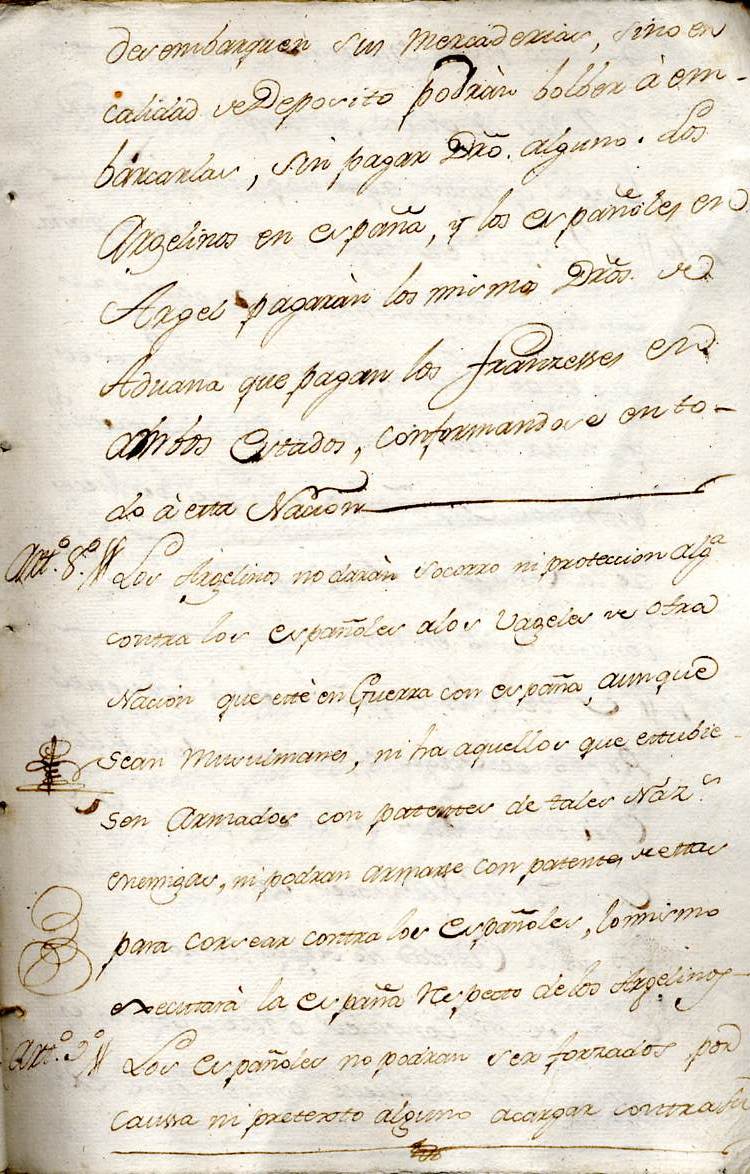 desembarquen sus Mercaderias, sino en
calidad de Deposito podràn bolber à em-
barcarlas, sin pagar Dro. alguno. Los
Argelinos en españa, y los españoles en
Argel pagaràn los mismos Dros. de
Aduana que pagan los franzesses en
ambos Estados, conformandose en to-
do à esta Nacion
Art.º 8.º Los Argelinos no daràn socorro ni proteccion alg.ª
contra los españoles a los Vageles de otra
Nacion que estè en Guerra con españa, aunque
sean Musulmanes, ni ha aquellos que estubie-
sen Armados con patentes de tales Naz.s
enemigas, ni podran armarse con patentes de estas
para corsear contra los Españoles, lo mismo
executarà la españa respecto de los Argelinos
Art.º 9.º Los españoles no podran ser forzados por
caussa ni pretexto alguno a cargar contra su